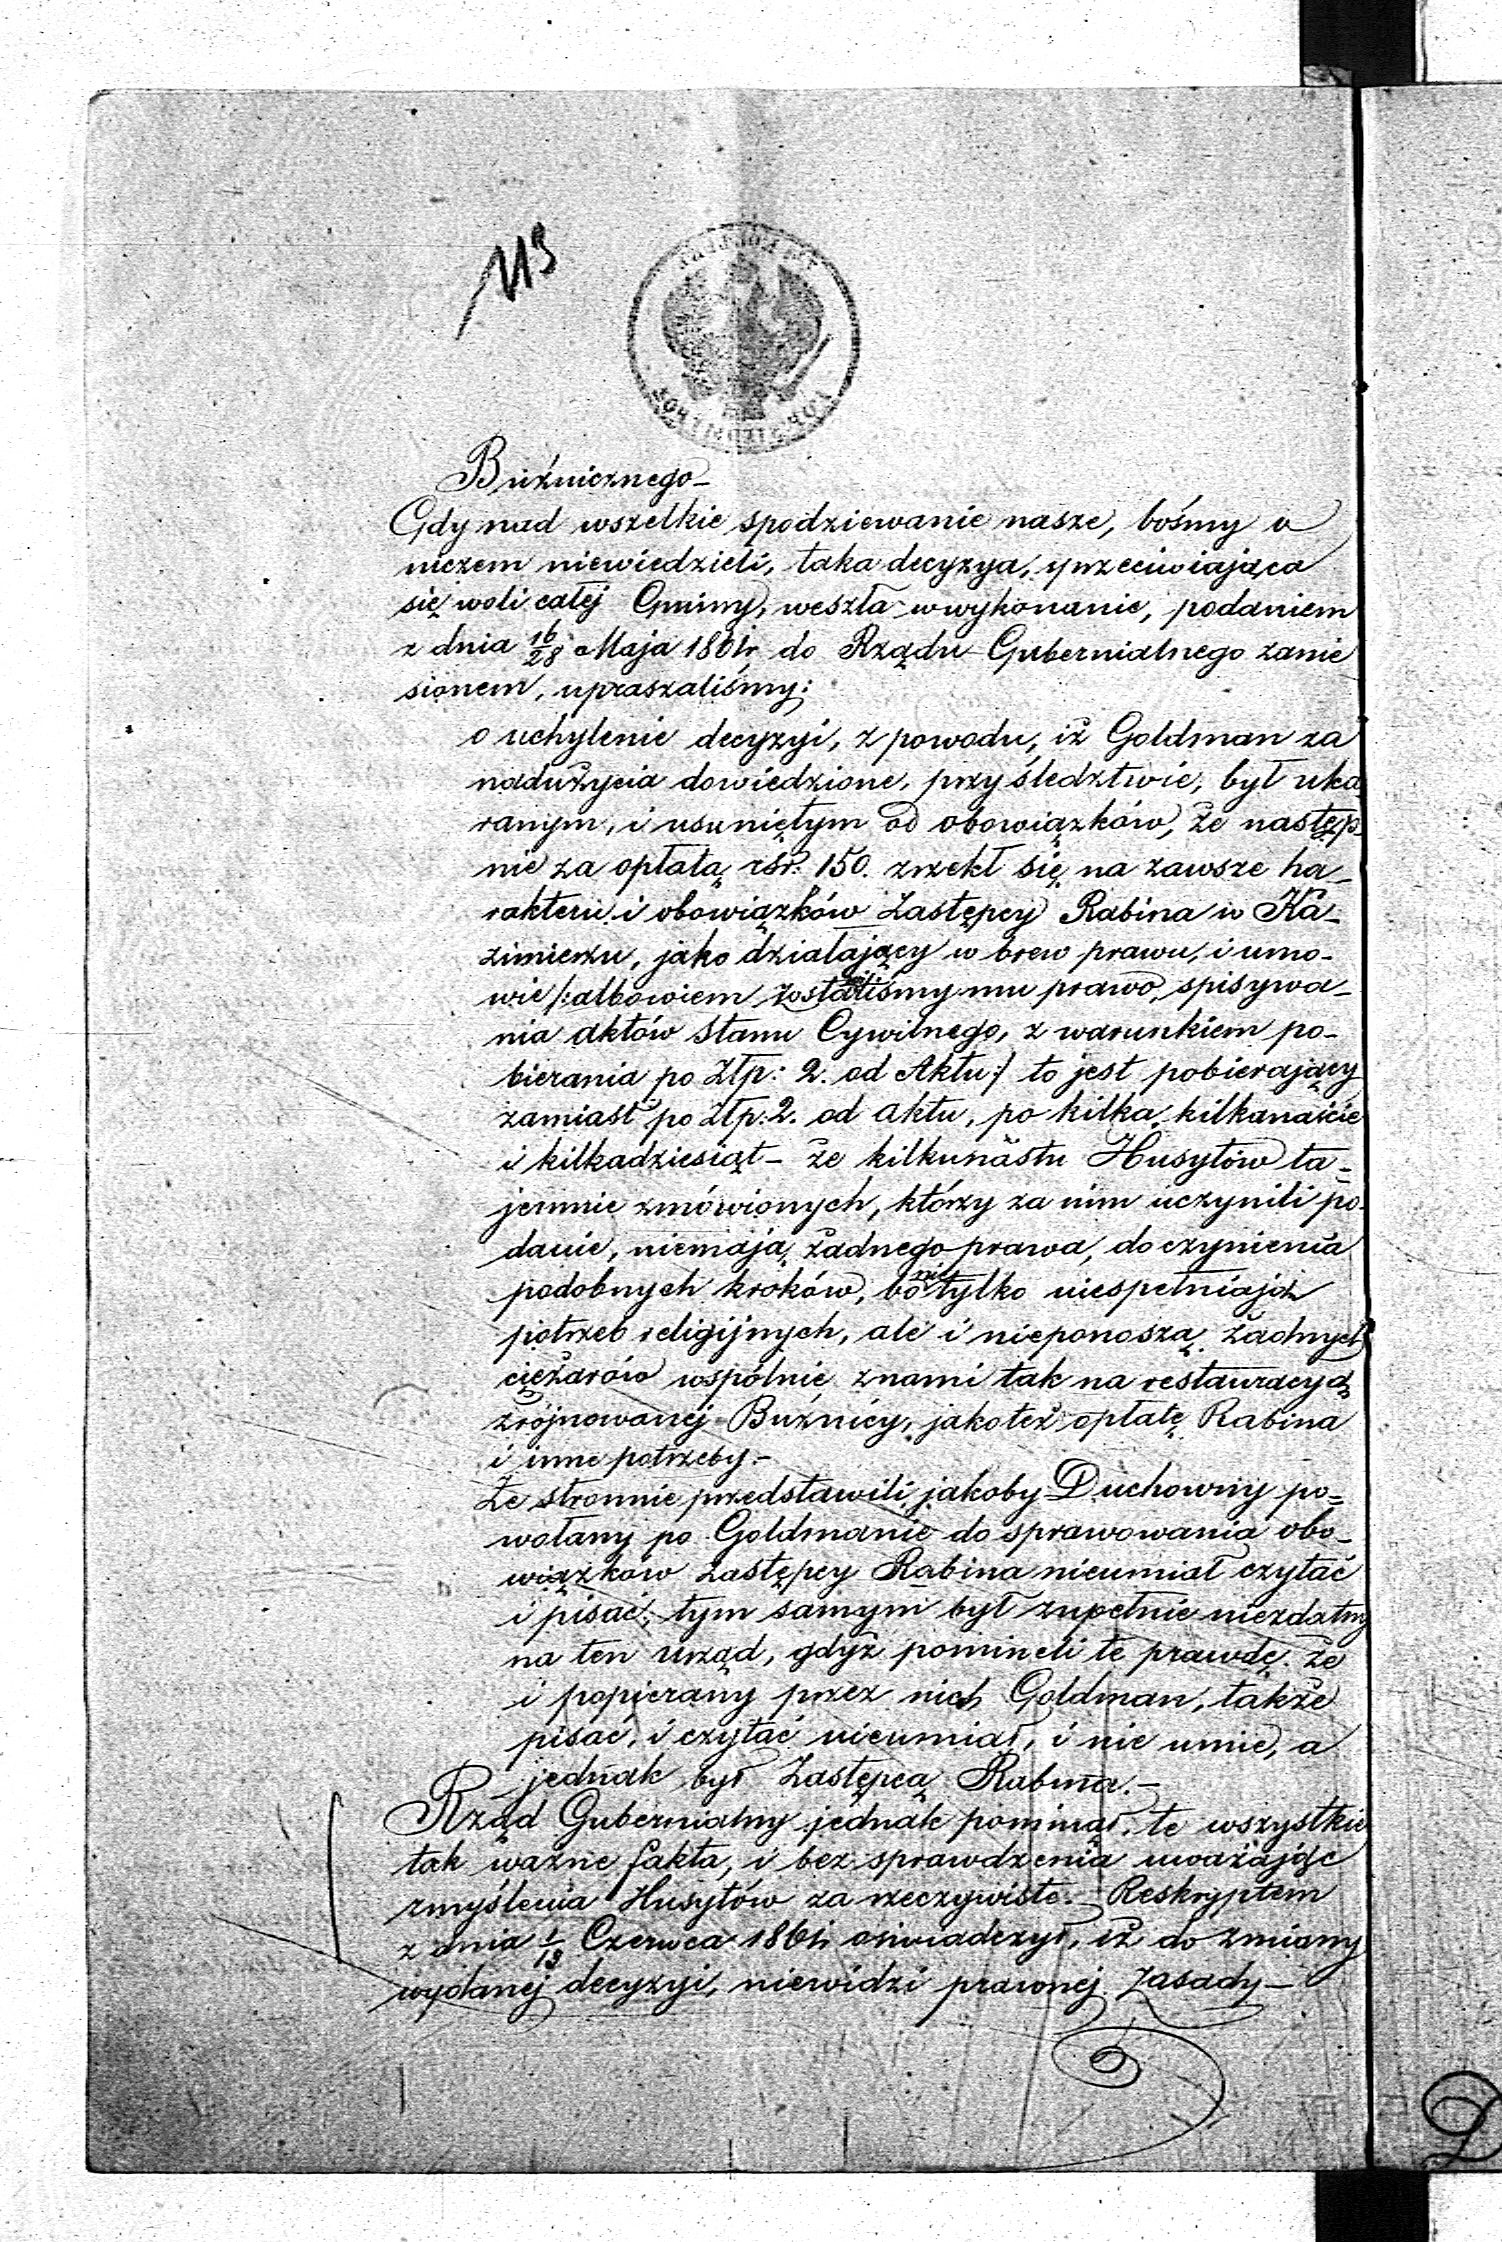 113
Buźnicznego
Gdy nad wszelkie spodziewanie nasze, bośmy o
niczem niewiedzieli, taka decyzya, sprzeciwiająca
się woli całej Gminy, weszła w wykonanie, podaniem
z dnia 16/28 Maja 1861r do Rządu Gubernialnego zanie
sionem, upraszaliśmy:
o uchylenie decyzyi, z powodu, iż Goldman za
nadużycia dowiedzione, przy śledztwie, był uka
ranym, i usuniętym od obowiązków, że następ-
nie za opłatą rśr: 150. zrzekł się na zawsze ha-
rakteru i obowiązków Zastępcy Rabina w Ka-
zimierzu, jako działający w brew prawu, i umo-
wie /:albowiem zostawiliśmy mu prawo, spisywa-
nia aktów Stanu Cywilnego, z warunkiem po-
bierania po Złp: 2. od Aktu:/ to jest pobierający
zamiast po złp: 2. od aktu, po kilka, kilkanaście
i kilkadziesiąt - że kilkunastu Husytów ta-
jemnie zmówionych, którzy za nim uczynili po-
danie, niemają żadnego prawa, do czynienia
podobnych kroków, bo nie tylko niespełniają
potrzeb religijnych, ale i nieponoszą żadnych
ciężarów wspólnie znami tak na restauracyą
zrójnowanej Buźnicy, jakoteż opłatę Rabina
i inne potrzeby.-
że stronnie przedstawili jakoby Duchowny po=
wołany po Goldmanie do sprawowania obo-
wiązków Zastępcy Rabina nieumiał czytać
i pisać, tym samym był zupełnie niezdatny
na ten urząd, gdyż pomineli te prawdę, że
i popierany przez nich Goldman, także
pisać, i czytać nieumiał, i nie umie, a
jednak był Zastępcą Rabina.-
Rząd Gubernialny jednak pominął, te wszystkie
tak ważne fakta, i bez sprawdzenia uważając
zmyślenia Husytów za rzeczywiste. Reskryptem
z dnia 1/13 Czerwca 1861r oświadczył, iż do zmiany
wydanej decyzyi, niewidzi prawnej zasady-